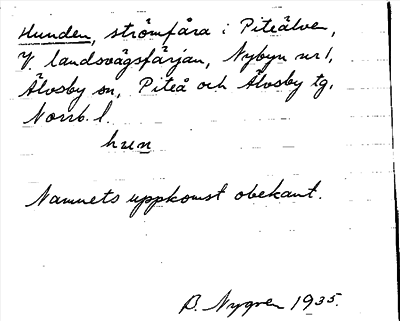 Hunden, strömfåra i Piteälven,
V. landsvägsfärjan, Nybyn nr 1,
Älvsby sn, Piteå och Älvsby tg,
Norrb. l.
hun
Namnets uppkomst obekant.
B. Nygren 1935.